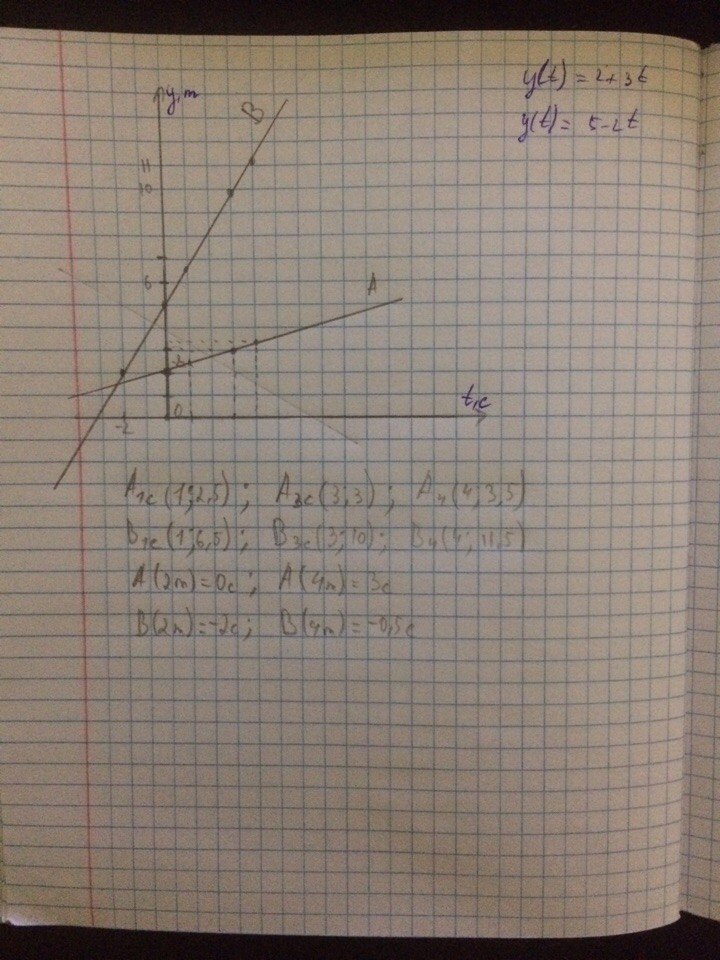 y(t) = 2+3t
y(t) = 5-2t
y,m
B
11
10
6
A
2
t,c
0
-2
A1c(1;2,5); A3c(3;3); A4(4;3,5)
B1c(1;6,5); B3c(3;10); B4(4;11,5)
A(2m)=0c; A(4m)=3c
B(2m)=-2c; B(4m)=-0,5c